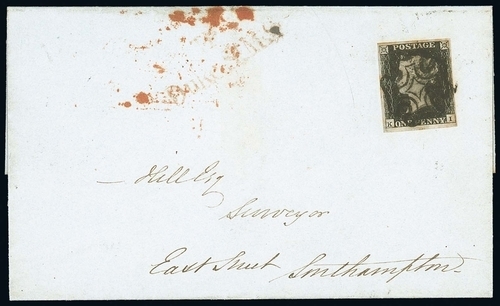 POSTAGE
K ONE PENNY I
Hill Esq
Surveyor
East Street Southampton